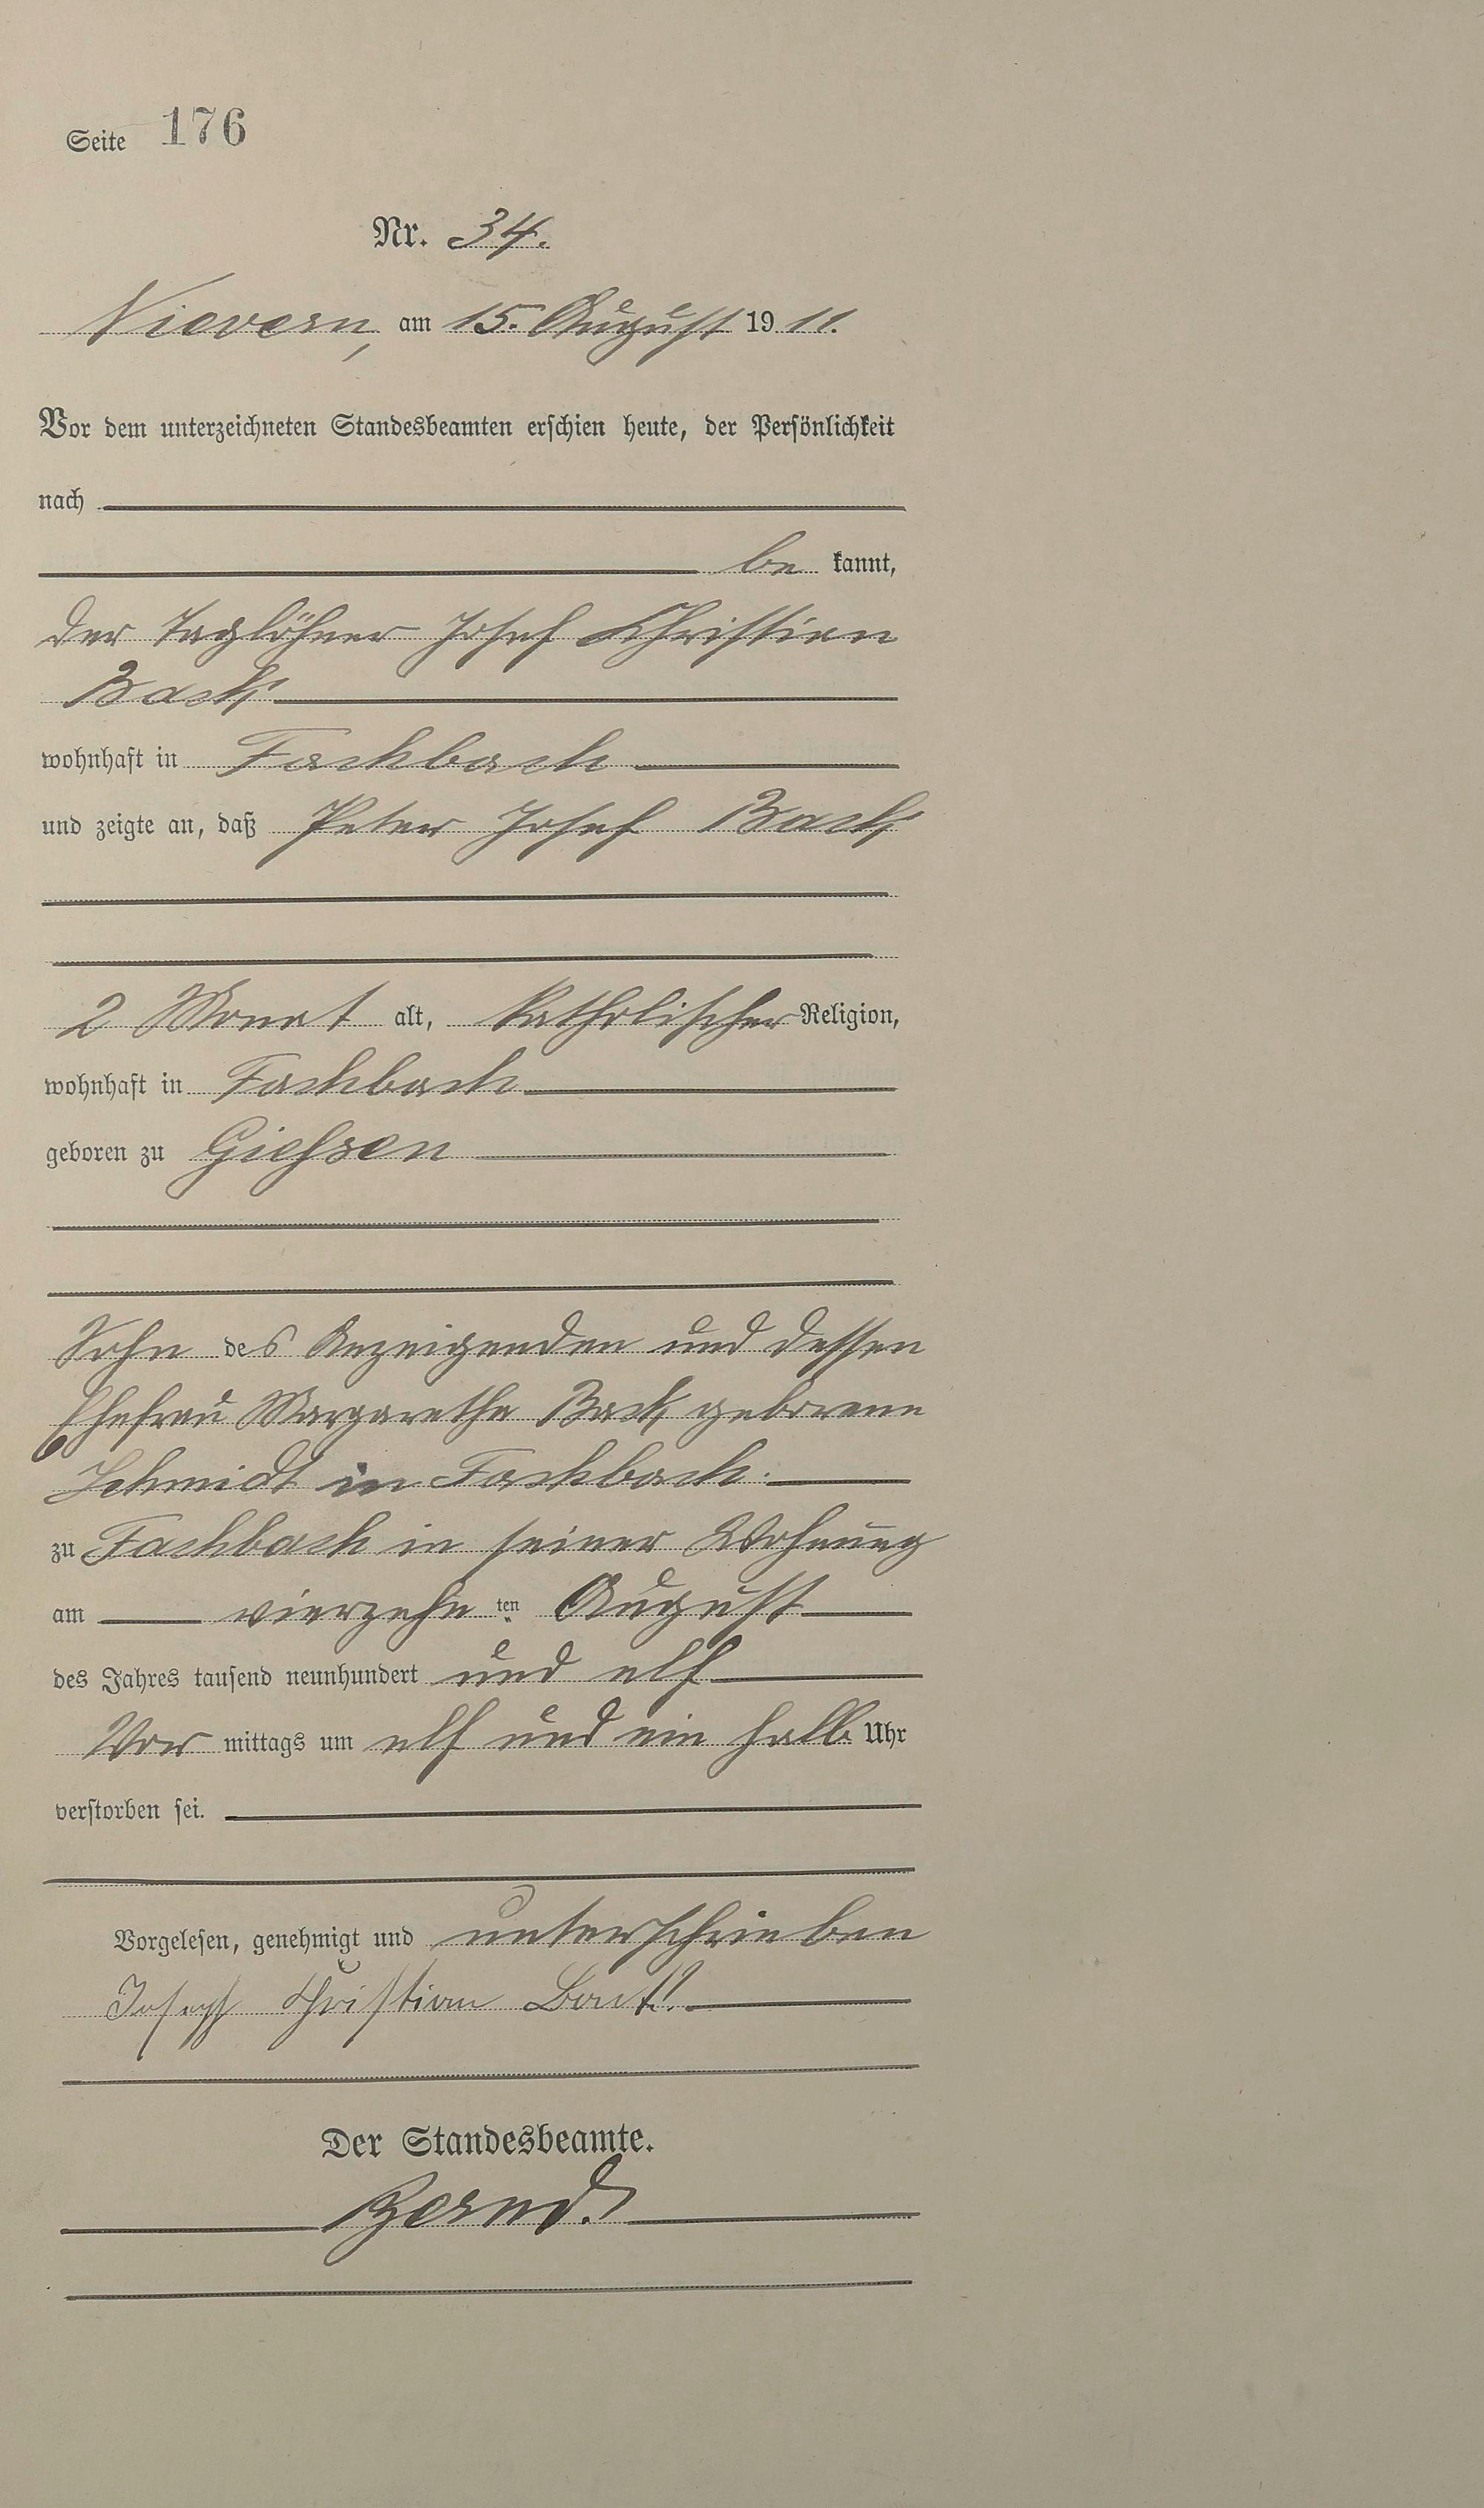 Seite 176
Nr. 34.
Nievern, am 15. August 1911.
Vor dem unterzeichneten Standesbeamten erschien heute, der Persönlichkeit
nach
be kannt,
der Taglöhner Josef Christian
Back
wohnhaft in Fachbach
und zeigte an, daß Peter Josef Back
2 Monat alt, katholischer Religion,
wohnhaft in Fachbach
geboren zu Giessen
Sohn des Anzeigenden und dessen
Ehefrau Margaretha Back geborene
Schmidt in Fachbach.
zu Fachbach in seiner Wohnung
am vierzehn ten August
des Jahres tausend neunhundert und elf
Vor mittags um elf und ein halb Uhr
verstorben sei.
Vorgelesen, genehmigt und unterschrieben
Joseph Christian
Der Standesbeamte.